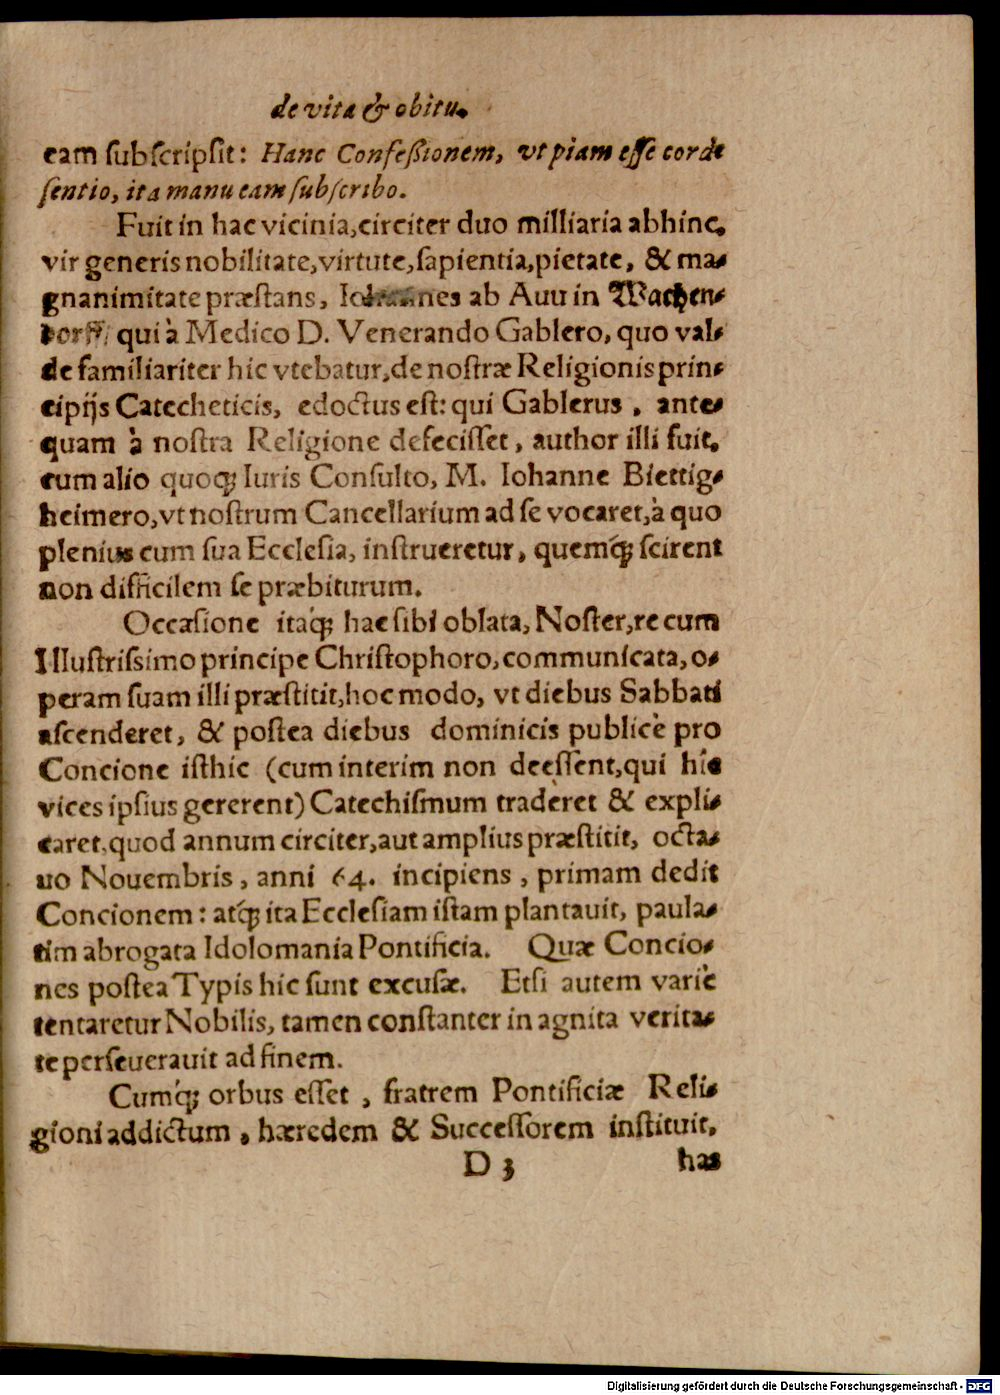 de vita & obitu.
eam subscripsit: Hanc Confeßionem, vt piam esse corde
sentio, ita manu eam subscribo.
Fuit in hac vicinia, circiter duo milliaria abhinc,
vir generis nobilitate, virtute, sapientia, pietate, & ma-
gnanimitate præstans, Iohannes ab Avv in Wachen-
dorff, qui à Medico D. Venerando Gablero, quo val-
de familiariter hic vtebatur, de nostræ Religionis prin-
cipijs Catecheticis, edoctus est: qui Gablerus, ante-
quam à nostra Religione defecisset, author illi fuit,
cum alio quoq; Iuris Consulto, M. Iohanne Biettig-
heimero, vt nostrum Cancellarium ad se vocaret, à quo
plenius cum sua Ecclesia, instrueretur, quemq́; scirent
non difficilem se præbiturum.
Occasione itaq́; hac sibi oblata, Noster, re cum
Illustrissimo principe Christophoro, communicata, o-
peram suam illi præstitit, hoc modo, vt diebus Sabbati
ascenderet, & postea diebus dominicis publicè pro
Concione isthic (cum interim non deessent, qui hîc
vices ipsius gererent) Catechismum traderet & expli-
caret, quod annum circiter, aut amplius præstitit, octa-
uo Nouembris, anni 64. incipiens, primam dedit
Concionem: atq́; ita Ecclesiam istam plantauit, paula-
tim abrogata Idolomania Pontificia. Quæ Concio-
nes postea Typis hic sunt excusæ. Etsi autem variè
tentaretur Nobilis, tamen constanter in agnita verita-
te perseuerauit ad finem.
Cumq́; orbus esset, fratrem Pontificiæ Reli-
gioni addictum, hæredem & Successorem instituit,
D 3 has
Digitalisierung gefördert durch die Deutsche Forschungsgemeinschaft - DFG